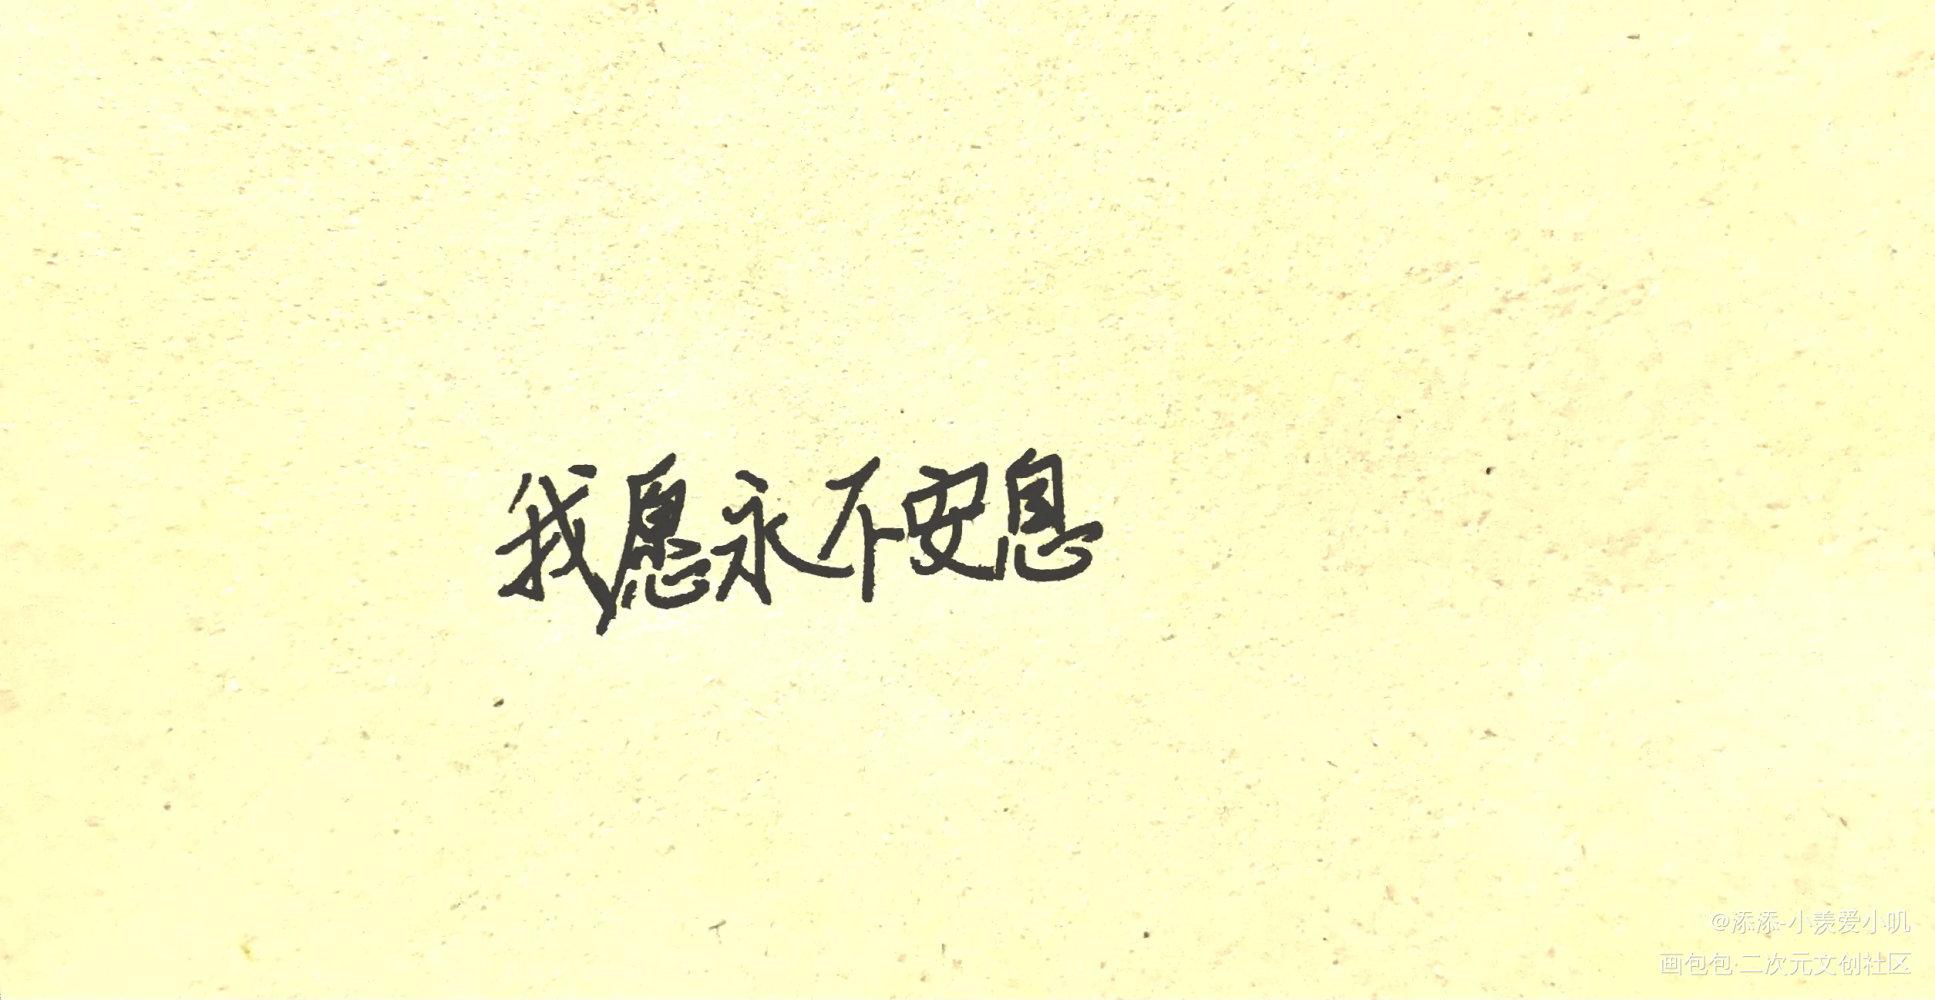 我愿永不安息
@添添-小羡爱小叽
画包包·二次元文创社区